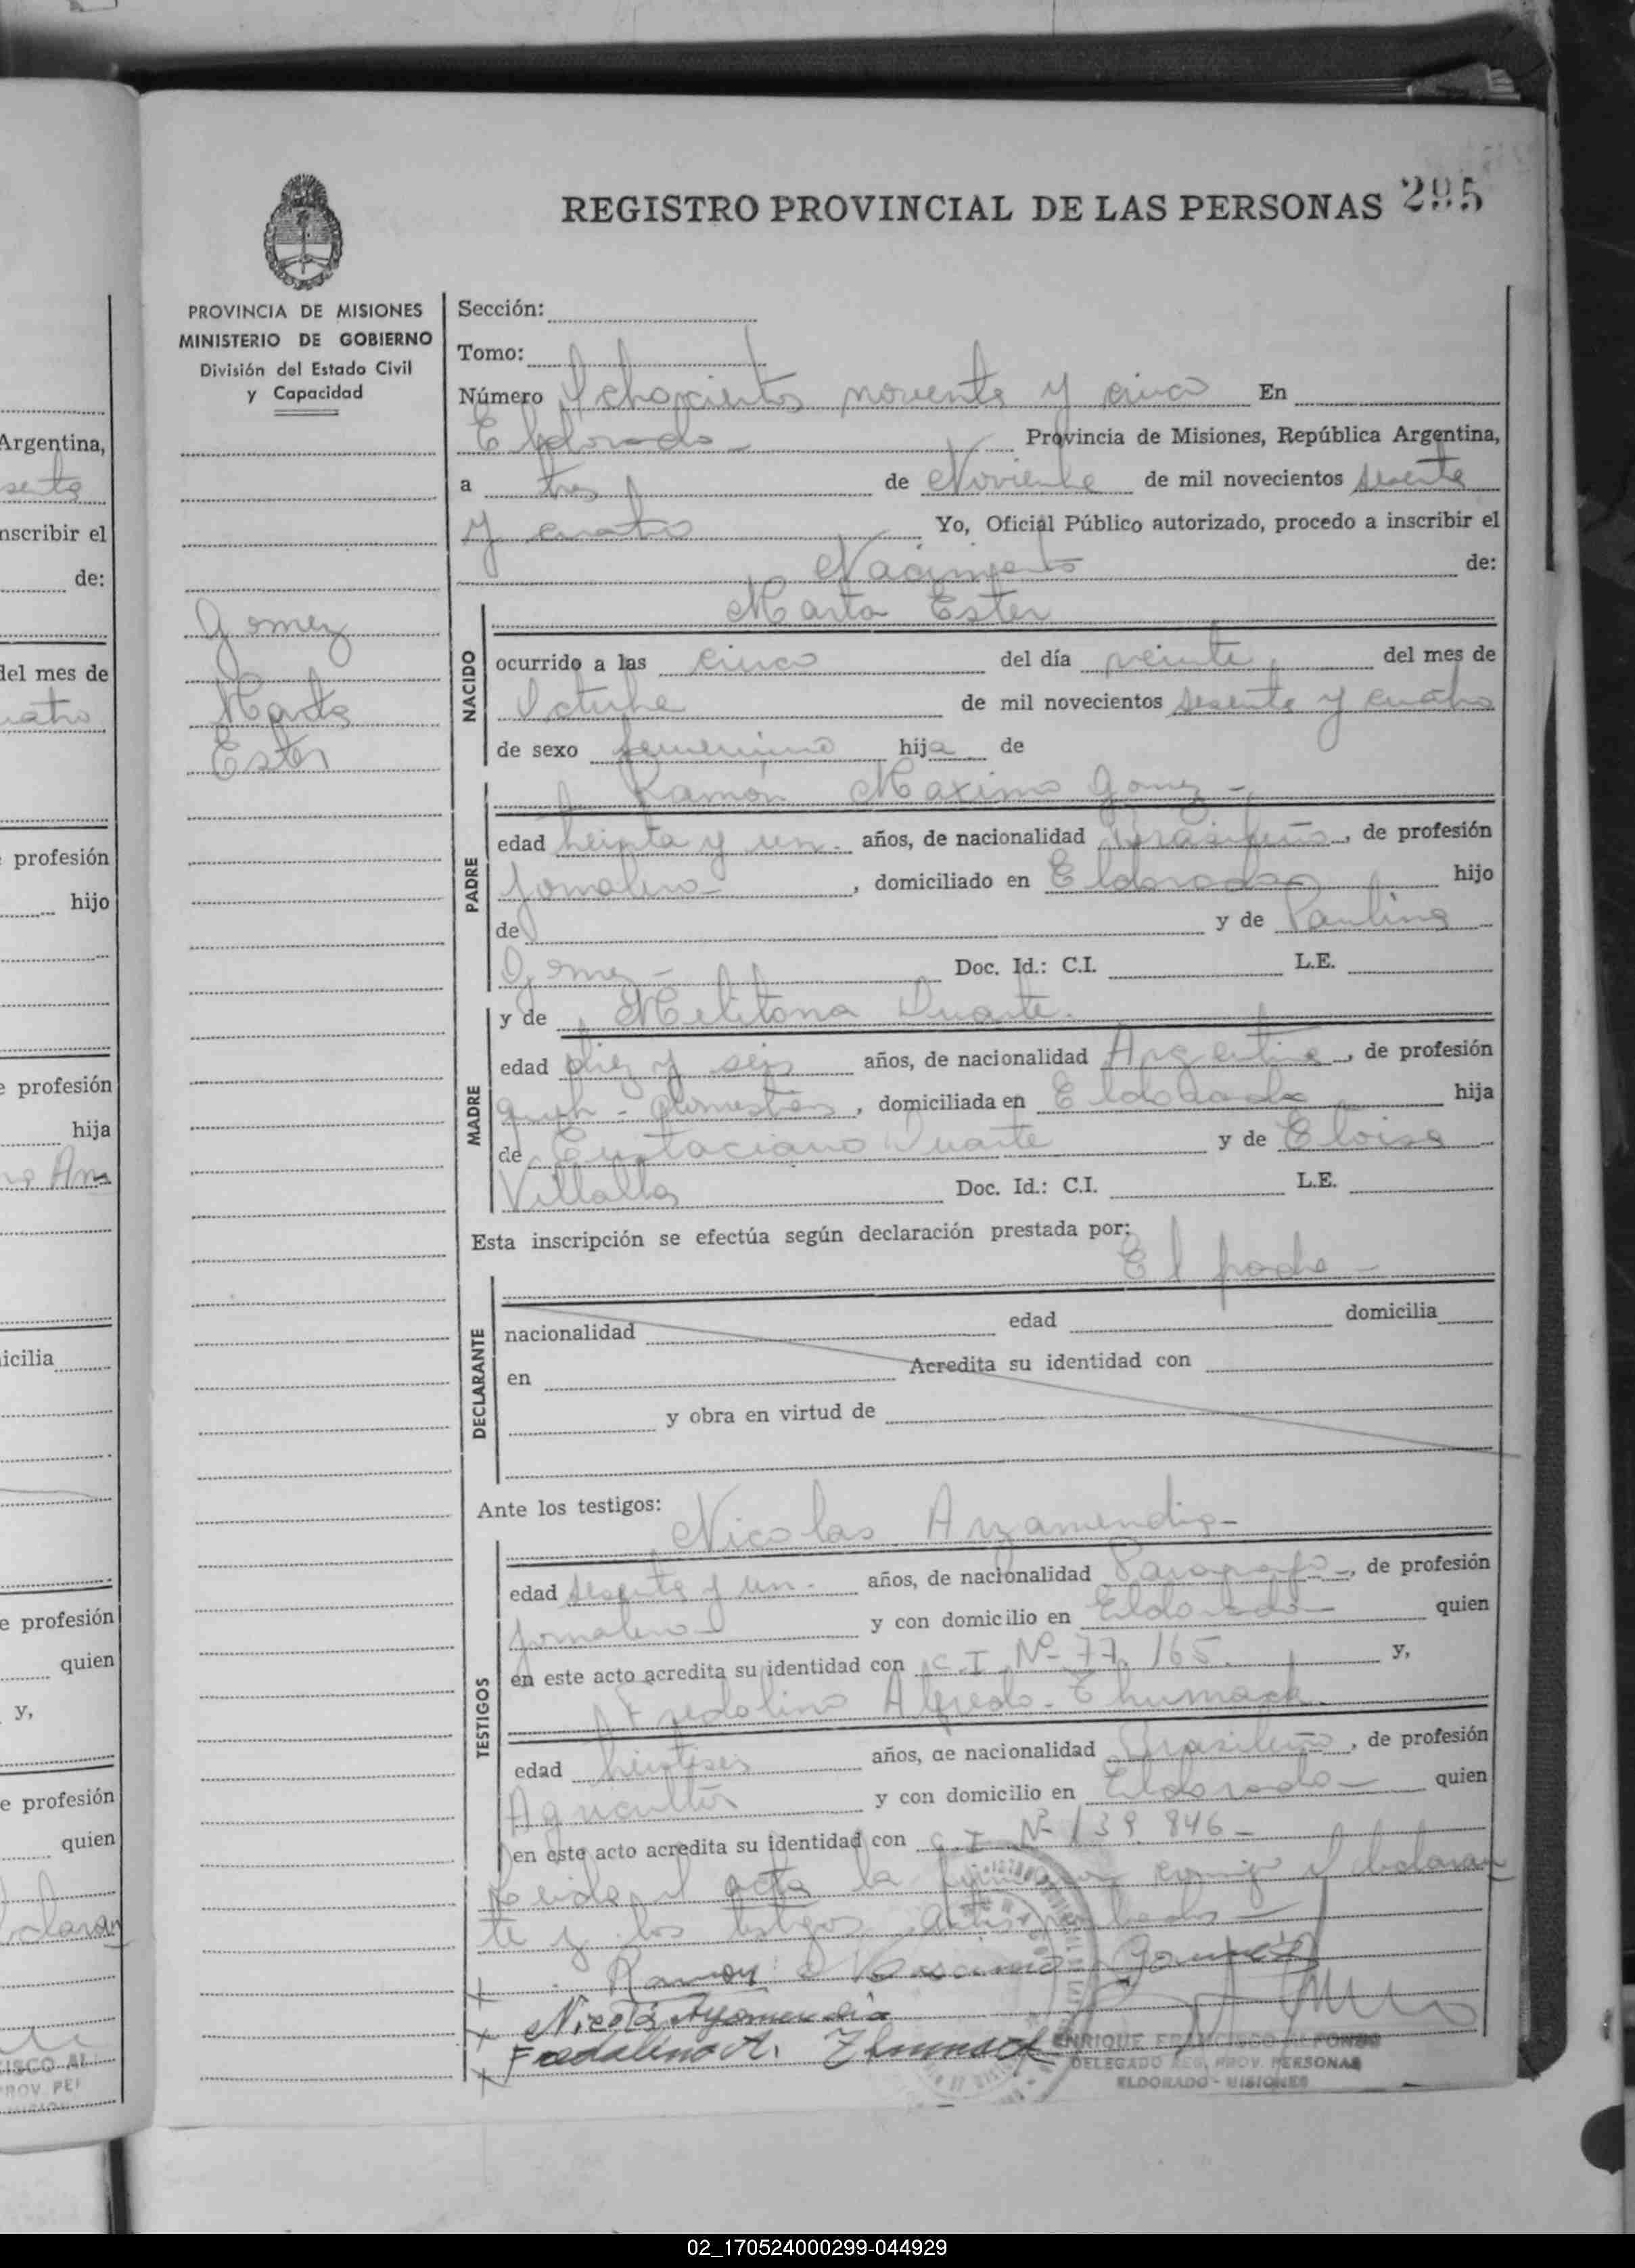 REGISTRO PROVINCIAL DE LAS PERSONAS 295
PROVINCIA DE MISIONES
MINISTERIO DE GOBIERNO
División del Estado Civil
y Capacidad
Gomez
Marta
Ester
Sección:
Tomo:
Número Ochocientos noventa y cinco En
Eldorado Provincia de Misiones, República Argentina,
a tres de Noviembre de mil novecientos sesenta
y cuatro Yo, Oficial Público autorizado, procedo a inscribir el
Nacimiento de:
Marta Ester
NACIDO
ocurrido a las cinco del día veinte del mes de
Octubre de mil novecientos sesenta y cuatro
de sexo femenino hija de
Ramón Maximo Gomez -
PADRE
edad treinta y un - años, de nacionalidad Brasileño, de profesión
jornalero, domiciliado en Eldorado hijo
de y de Paulina
Gomez - Doc. Id.: C.I. L.E.
y de Melitona Duarte.
MADRE
edad diez y seis años, de nacionalidad Argentina, de profesión
domésticos, domiciliada en Eldorado hija
de Eustaciano Duarte y de Eloisa
Villalba Doc. Id.: C.I. L.E.
Esta inscripción se efectúa según declaración prestada por:
El padre -
DECLARANTE
nacionalidad edad domicilia
en Acredita su identidad con
y obra en virtud de
Ante los testigos:
Nicolas Arzamendia -
TESTIGOS
edad sesenta y un - años, de nacionalidad Paraguayo -, de profesión
jornalero y con domicilio en Eldorado - quien
en este acto acredita su identidad con C.I. Nº 77.165. y,
Fredolino Alfredo Thumack.
edad treintiseis años, de nacionalidad Brasileño, de profesión
Agricultor y con domicilio en Eldorado - quien
en este acto acredita su identidad con C.I. Nº 139.846 -
Leida el acta la firman conmigo el declaran
te y los testigos
Ramon Gomez
x Nicolas
x Fredolino A. Thumack
x
ENRIQUE FRANCISCO ALFONSO
DELEGADO REG. PROV. PERSONAS
ELDORADO - MISIONES
Argentina,
inscribir el
de:
del mes de
profesión
hijo
profesión
hija
profesión
quien
y,
profesión
quien
02_170524000299-044929